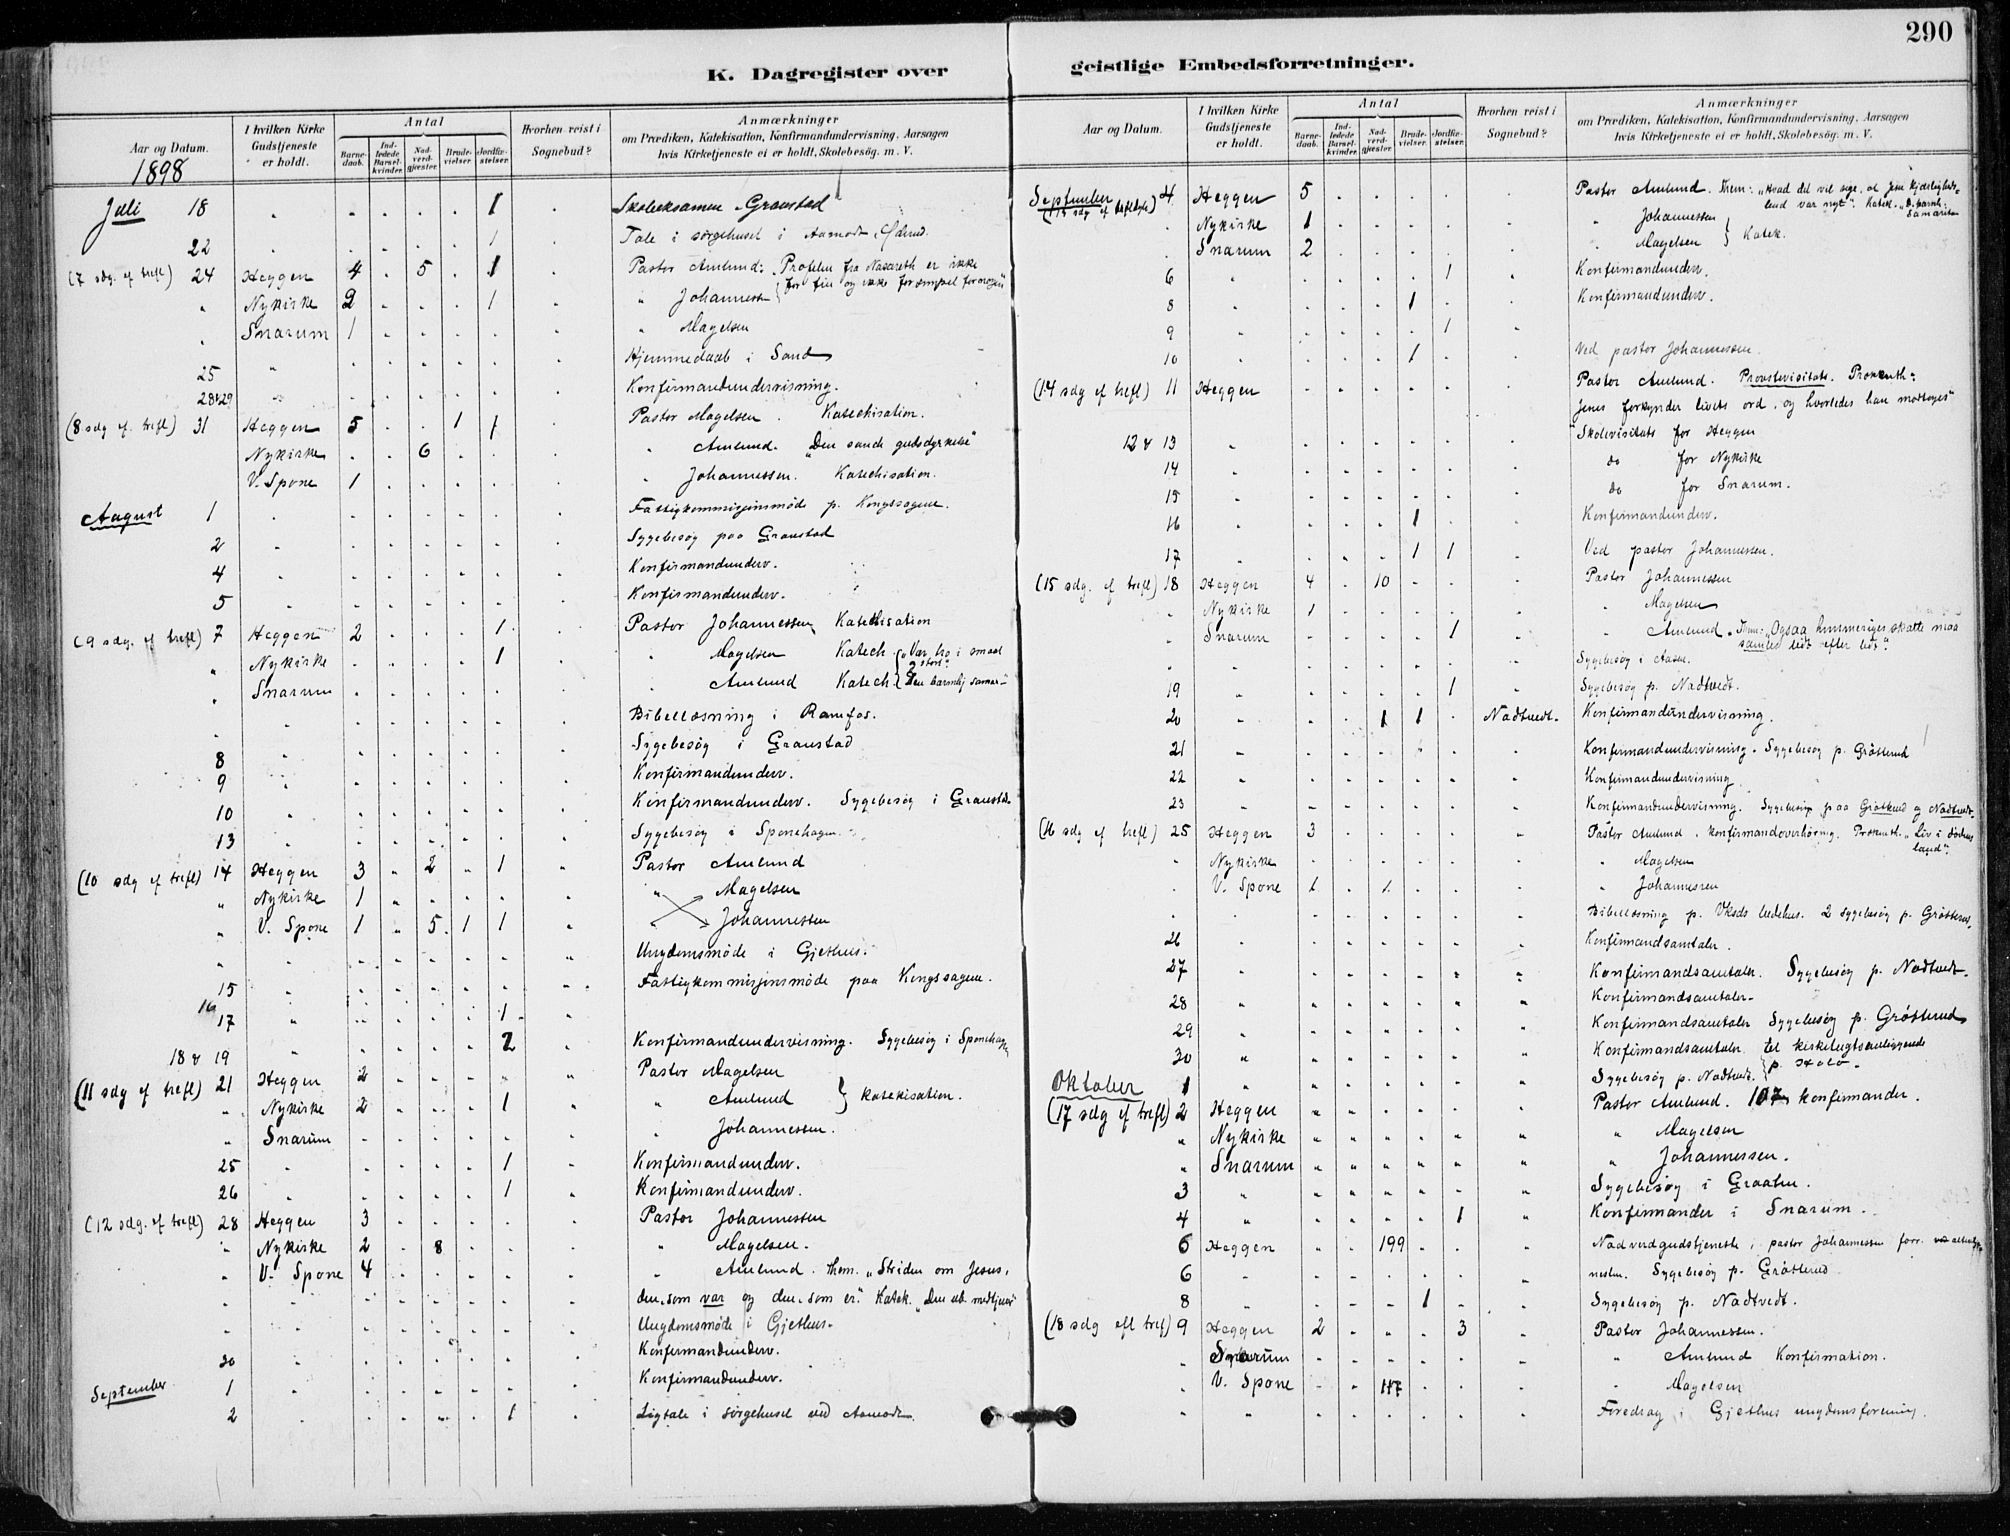 290
K. Dagregister over
geistlige Embedsforretninger.
Aar og Datum.
I hvilken Kirke Gudstjeneste er holdt.
Antal
Barne-daab.
Ind-ledede Barsel-kvinder.
Nad-verd-gjester.
Brude-vielser.
Jordfæ-stelser.
Hvorhen reist i Sognebud?
Anmærkninger
om Prædiken, Katekisation, Konfirmandundervisning, Aarsagen
hvis Kirketjeneste ei er holdt, Skolebesøg. m. V.
1898
Juli 18 " . . . . 1 . Skoleeksamen Graustad
22 . . . . . 1 . Tale i sørgehuset i Aamodt
(7 sdg. ef trefl) 24 Heggen 4 . 5 . 1 . Pastor Amlund: Profeten fra Nasareth er ikke
" Nykirke 2 . . . 1 . " Johannessen for fin og ikke for simpel for nogen"
" Snarum 1 . . . . . " Magelsen
25 " . . . . . . Hjemmedaab i Sand
28&29 " . . . . . . Konfirmandundervisning.
(8 sdg ef. trefl) 31 Heggen 5 . . 1 1 . Pastor Magelsen. Katechisation.
Nykirke . . 6 . . . " Amlund. "Den sande gudsdyrkelse"
V. Spone 1 . . . . . " Johannessen. Katechisation.
August 1 . . . . . . . Fattigkommisjonsmøde p. Kongssagene.
2 . . . . . . . Sygebesøg paa Graustad
4 . . . . . . . Konfirmandunderv.
5 . . . . . . . Konfirmandunderv.
(9 sdg. ef trefl) 7 Heggen 2 . . . 1 . Pastor Johannessen Katekisation
" Nykirke . . . . 1 . " Magelsen Katech. "Vær tro i smaat
" Snarum . . . . . . " Amlund Katech. Den barmhj samar-"
. . . . . . . Bibellæsning i Ramfos.
8 . . . . . . . Sygebesøg i Graustad
9 . . . . . . . Konfirmandunderv.
10 . . . . . . . Konfirmandunderv. Sygebesøg i Graustad.
13 . . . . . . . Sygebesøg i Sponehagen.
(10 sdg ef trefl) 14 Heggen 3 " 2 " 1 . Pastor Amlund
" Nykirke 1 " . . . . " Magelsen
" V. Spone 1 " 5 1 1 " Johannessen
" . . . . . . " Ungdomsmøde i Gjethus.
15 " . . . . . " Fattigkommisjonsmøde paa Kongssagene.
16 17 " . . . . 1 "
18 & 19 " . . . . 2 . Konfirmandundervisning. Sygebesøg i Sponehagen
(11 sdg ef trefl) 21 Heggen 2 . . . " " Pastor Magelsen
" Nykirke 2 . . . 1 . " Amlund } katekisation.
" Snarum . . . . . . " Johannessen.
25 . . . . . 1 " Konfirmandunderv.
26 " . . . . 1 " Konfirmandunderv.
(12 sdg. ef trefl) 28 Heggen 3 . . . . . Pastor Johannessen
" Nykirke 2 . 8 . . . " Magelsen.
" V. Spone 4 . . . . . " Amlund. Them. "Striden om Jesus,
. . . . . . . den, som var og den, som er." Katek.
. . . . . . . Ungdomsmøde i Gjethus.
30 . . . . . . . Konfirmandunderv.
September 1 . . . . . . . Konfirmandunderv.
2 . . . . . 1 . Ligtale i sørgehuset ved Aamodt
Aar og Datum.
I hvilken Kirke Gudstjeneste er holdt.
Antal
Barne-daab.
Ind-ledede Barsel-kvinder.
Nad-verd-gjester.
Brude-vielser.
Jordfæ-stelser.
Hvorhen reist i Sognebud?
Anmærkninger
om Prædiken, Katekisation, Konfirmandundervisning, Aarsagen
hvis Kirketjeneste ei er holdt, Skolebesøg. m. V.
September 4 Heggen 5 . . . . . Pastor Amlund. Them: "Hvad det vil sige, at Jesu kjærligheds-
bud var nyt". Katek.
. Nykirke 1 . . . . . " Johannessen
. Snarum 2 . . . . . " Magelsen } Katek.
6 . . . . . 1 . Konfirmandunderv.
8 . . . . 1 . . Konfirmandunderv.
9 . . . . . 1 .
10 . . . . 1 . . Ved pastor Johannessen.
(14 sdg ef trefl) 11 Heggen . . . . . . Pastor Amlund. Provstevisitats.
Jesus forkynder livets ord, og hvorledes han mottages"
12 & 13 " . . . . . . Skolevisitats for Heggen
14 " . . . . . . do for Nykirke
15 " . . . . . . do for Snarum.
16 " . . . 1 . . Konfirmandunderv.
17 " . . . 1 1 . Ved pastor Johannessen.
(15 sdg. ef trefl) 18 Heggen 4 . 10 . . . Pastor Johannessen
" Nykirke 1 . . . . . " Magelsen
" Snarum . . . . 1 . " Amlund. Them: "Ogsaa himmeriges skatte maa
samles lidt efter lidt".
. . . . . . . Sygebesøg i Aasen.
19 " . . . . 1 " Sygebesøg p. Nadtvedt.
20 " . . 1 1 . Nadtvedt. Konfirmandundervisning.
21 " . . . . . . Konfirmandundervisning. Sygebesøg p. Grøtterud
22 " . . . . . . Konfirmandundervisning
23 " . . . . . . Konfirmandundervisning. Sygebesøg paa Grøtterud og Nadtvedt.
(16 sdg ef trefl) 25 Heggen 3 . . . . " Pastor Amlund. Konfirmandoverhøring. "Liv i dødens
land".
" Nykirke . . . . . . " Magelsen
. V. Spone 1 . 1 . . . " Johannessen
. . . . . . . Bibellæsning p. bedehus. 2 sygebesøg p. Grøtterud.
26 . . . . . . . Konfirmandsamtaler.
27 . . . . . . . Konfirmandsamtaler. Sygebesøg p. Nadtvedt.
28 " . . . . . . Konfirmandsamtaler.
29 " . . . . . . Konfirmandsamtaler Sygebesøg p. Grøtterud
30 " . . . . . . Konfirmandsamtaler
Oktober 1 " . . . . . . Sygebesøg p. Nadtvedt.
(17 sdg ef trefl) 2 Heggen " " " " " " Pastor Amlund. 107 konfirmander.
" Nykirke " " " " " " " Magelsen
" Snarum " " " " " " " Johannessen.
3 " " " " " " " Sygebesøg i Graaten.
4 " . . . . 1 " Konfirmander i Snarum.
6 Heggen " " 199 . . . Nadverdgudstjeneste, pastor Johannessen forr.
6 " . . . . . . Sygebesøg p. Grøtterud
8 " . . . 1 . . Sygebesøg p. Nadtvedt.
(18 sdg eft tref) 9 Heggen 2 . . . 3 . Pastor Johannessen.
" Snarum . . . . . . " Amlund Konfirmation.
" V. Spone . . 117 . . . " Magelsen
" " . . . . . . Foredrag i Gjethus ungdomsforening.